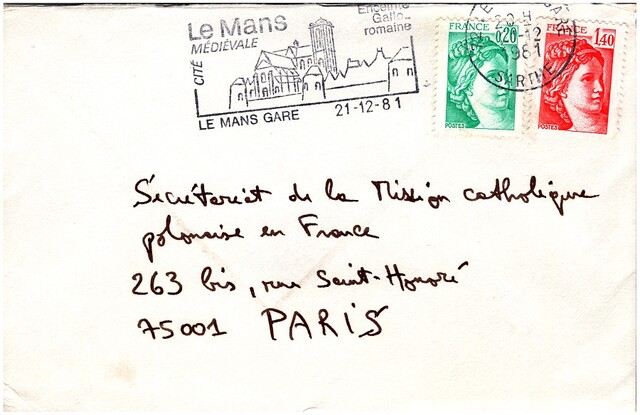 Le Mans
MÉDIÉVALE
CITÉ
Enceinte
Gallo-
romaine
LE MANS GARE 21-12-81
FRANCE
0,20
POSTES
FRANCE
1,40
POSTES
1981
SARTHE
Sécrétariat de la Mission catholique
polonaise en France
263 bis, rue Saint-Honoré
75001 PARIS